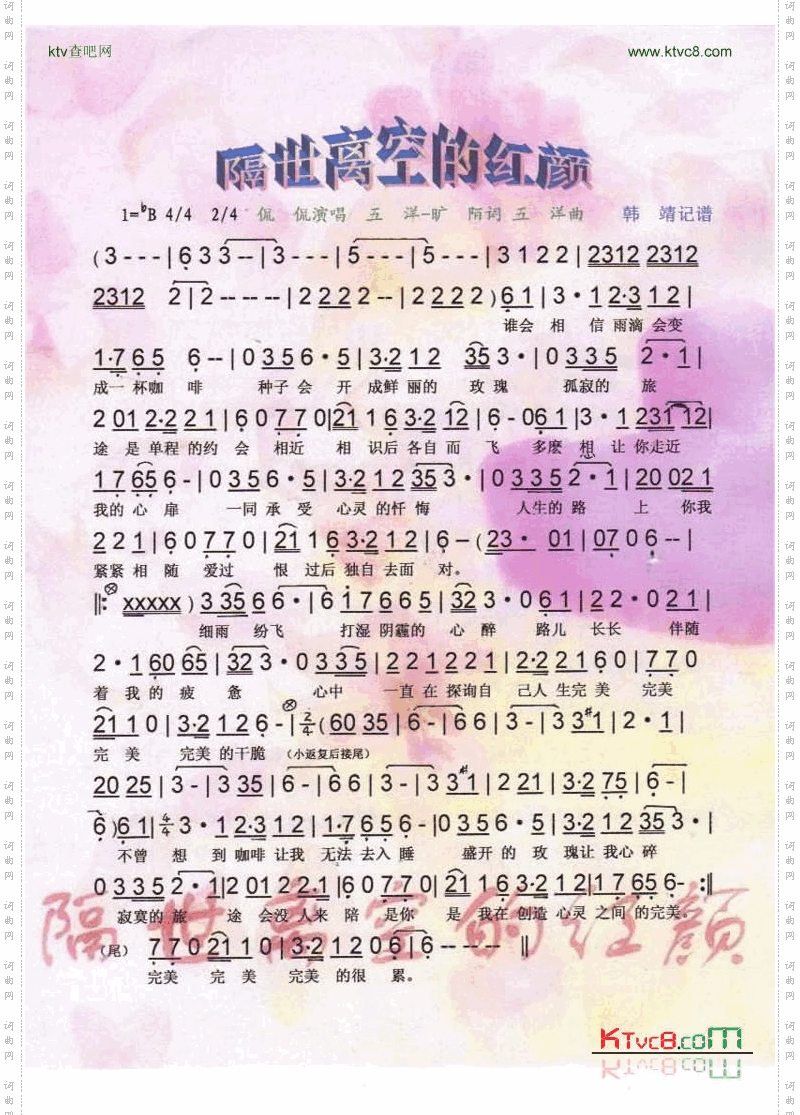 ktv查吧网 www.ktvc8.com
隔世离空的红颜
1=♭B 4/4 2/4 侃 侃演唱 五 洋-旷 陌词 五 洋曲 韩 靖记谱
(3 - - - | 6 3 3 - - | 3 - - - | 5 - - - | 5 - - - | 3 1 2 2 | 2312 2312
2312 2 | 2 - - - - | 2 2 2 2 - - | 2 2 2 2 ) 6 1 | 3 · 1 2·3 1 2 |
谁会 相 信 雨滴 会变
1·7 6 5 6 - - | 0 3 5 6 · 5 | 3·2 1 2 35 3 · | 0 3 3 5 2 · 1 |
成一 杯咖 啡 种子 会 开 成鲜 丽的 玫 瑰 孤寂的 旅
2 01 2·2 2 1 | 6 0 7 7 0 | 21 1 6 3·2 12 | 6 - 06 1 | 3 · 1 231 12 |
途 是 单程 的约 会 相近 相 识后 各自 而 飞 多麽 想 让 你走近
1 7 65 6 - | 0 3 5 6 · 5 | 3·2 1 2 35 3 · | 0 3 3 5 2 · 1 | 20 02 1
我的 心 扉 一同 承 受 心灵 的忏 悔 人生的 路 上 你我
2 2 1 | 6 0 7 7 0 | 21 1 6 3·2 1 2 | 6 - ( 23 · 01 | 07 0 6 - - |
紧紧 相 随 爱过 恨 过后 独自 去面 对。
‖: xxxxx ) 3 35 6 6 · | 6 1 7 6 6 5 | 32 3 · 0 6 1 | 2 2 · 0 2 1 |
细雨 纷飞 打湿 阴霾的 心 醉 路儿 长长 伴随
2 · 1 60 65 | 32 3 · 0 3 3 5 | 2 2 1 2 2 1 | 2·2 2 1 6 0 | 7 7 0
着 我 的 疲 惫 心中 一直 在 探询自 己人 生完 美 完美
21 1 0 | 3·2 1 2 6 - | 2/4 (60 35 | 6 - | 6 6 | 3 - | 3 3 #1 | 2 · 1 |
完 美 完美 的干脆 (小返复后接尾)
20 25 | 3 - | 3 35 | 6 - | 6 6 | 3 - | 3 3 #1 | 2 21 | 3·2 75 | 6 - |
6 ) 6 1 | 4/4 3 · 1 2·3 1 2 | 1·7 6 5 6 - | 0 3 5 6 · 5 | 3·2 1 2 35 3 · |
不曾 想 到 咖啡 让我 无法 去入 睡 盛开 的 玫 瑰让 我心 碎
0 3 3 5 2 · 1 | 2 01 2 2·1 | 6 0 7 7 0 | 21 1 6 3·2 12 | 1 7 65 6 - :‖
寂寞的 旅 途 会没 人来 陪 是你 是 我在 创造 心灵 之间 的完美。
隔世离空的红颜
(尾) 7 7 0 21 1 0 | 3·2 1 2 0 6 | 6 - - - - ‖
完美 完 美 完美 的很 累。
KTVC8.COM
词曲网